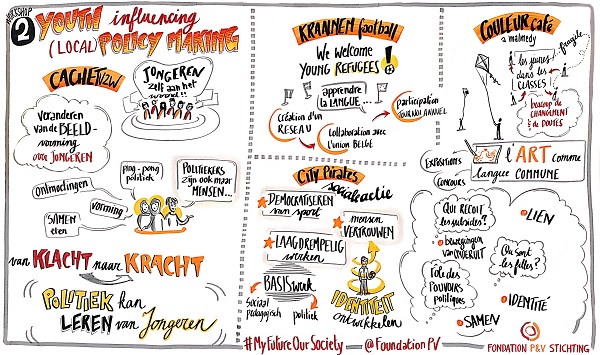 WORKSHOP
2
YOUTH influencing
(LOCAL) POLICY MAKING
CACHET VZW
JONGEREN
zelf aan het
woord!!
Veranderen
van de BEELD-
vorming
over JONGEREN
ping-pong
politiek
POLITIEKERS
zijn ook maar
MENSEN...
ontmoetingen
vorming
SAMEN
eten
van KLACHT naar KRACHT
POLITIEK kan
LEREN van Jongeren
KRAAINEM football
We welcome
YOUNG REFUGEES!
apprendre
la LANGUE...
participation
TOURNOI ANNUEL
Création d'un
RESEAU
Collaboration avec
l'union BELGE
City Pirates
socialeactie
DEMOCRATISEREN
van sport
mensen
VERTROUWEN
LAAGDREMPELIG
werken
BASISwerk
Sociaal
pedagogisch
politiek
IDENTITEIT
ontwikkelen
COULEUR café
à malmedy
fragile
les jeunes
dans les
CLASSES!
beaucoup de
CHANGEMENT
& de DOUTES
EXPOSITIONS
CONCOURS
l'ART comme
langue COMMUNE
Qui reçoit
les subsides?
LIEN
bewegingen
van ONDERUIT
Où sont
les filles?
rôle des
POUVOIRS
politiques
IDENTITÉ
SAMEN
#MyFutureOurSociety @FoundationPV
FONDATION P&V STICHTING